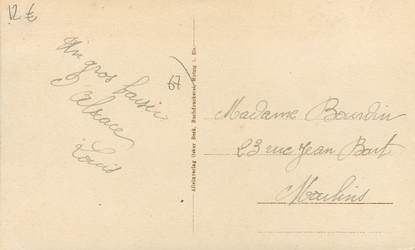 12 €
Un gros baiser
d'Alsace
Louis
67
Alleinverlag Oscar Beck, Buchdruckerei, i. Els.
Madame Bourdin
23 rue Jean Bart
Moulins